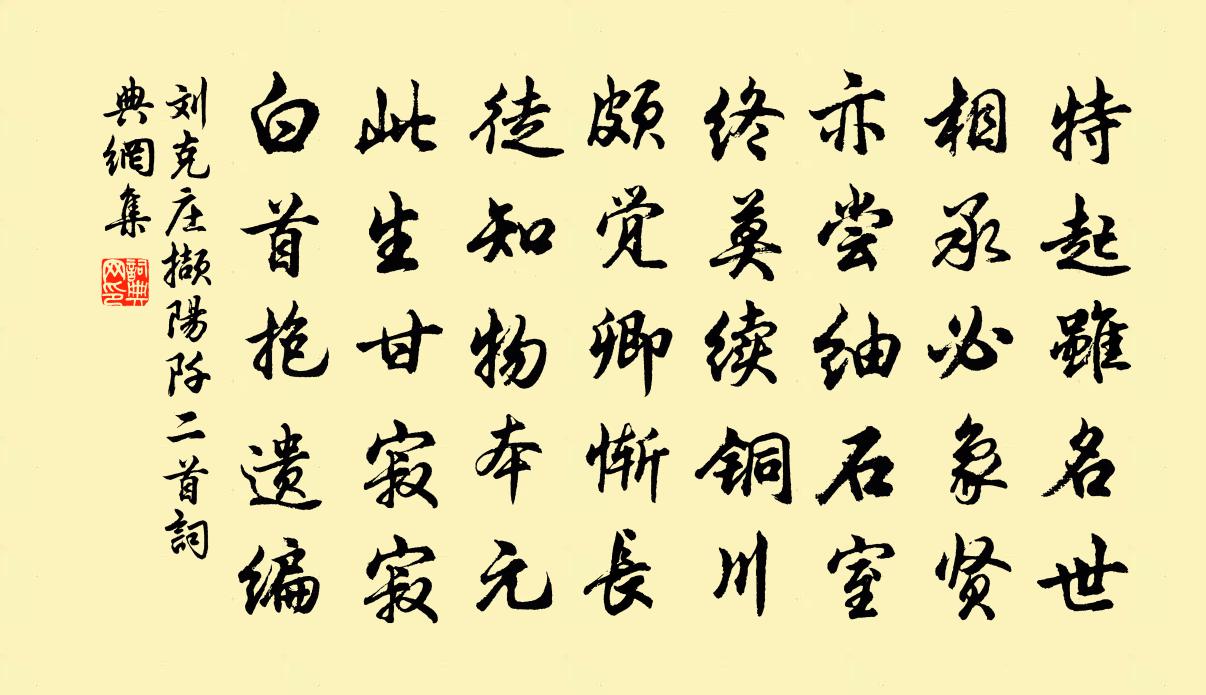 特起雖名世
相承必象贤
亦尝紬石室
终莫续铜川
颇觉卿惭長
徒知物本元
此生甘寂寂
白首抱遗编
刘克庄撷陽阡二首詞
典網集
詞典
网印